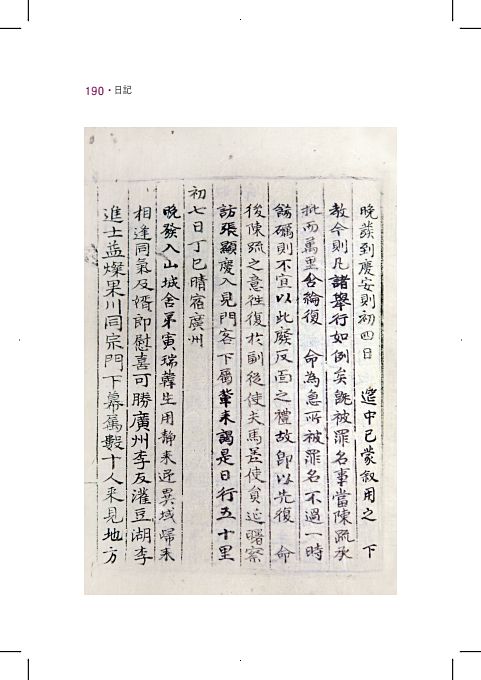 190・日記
晚發到慶安則初四日 筵中已蒙敘用之 下
敎令則凡諸擧行如例矣旣被罪名事當陳疏承
批而萬里含綸復 命爲急所被罪名不過一時
飭礪則不宜以此廢反面之禮故卽以先復 命
後陳疏之意往復於副
訪張顯慶入見門客下屬輩來謁是日行五十里
初七日丁巳晴宿廣州
晚發入山城舍弟寅瑞韓生用靜來迎異域歸來
相逢同氣及婿郞慰喜可勝廣州李友灌豆湖李
進士益燦果川同宗門下幕屬數十人來見地方